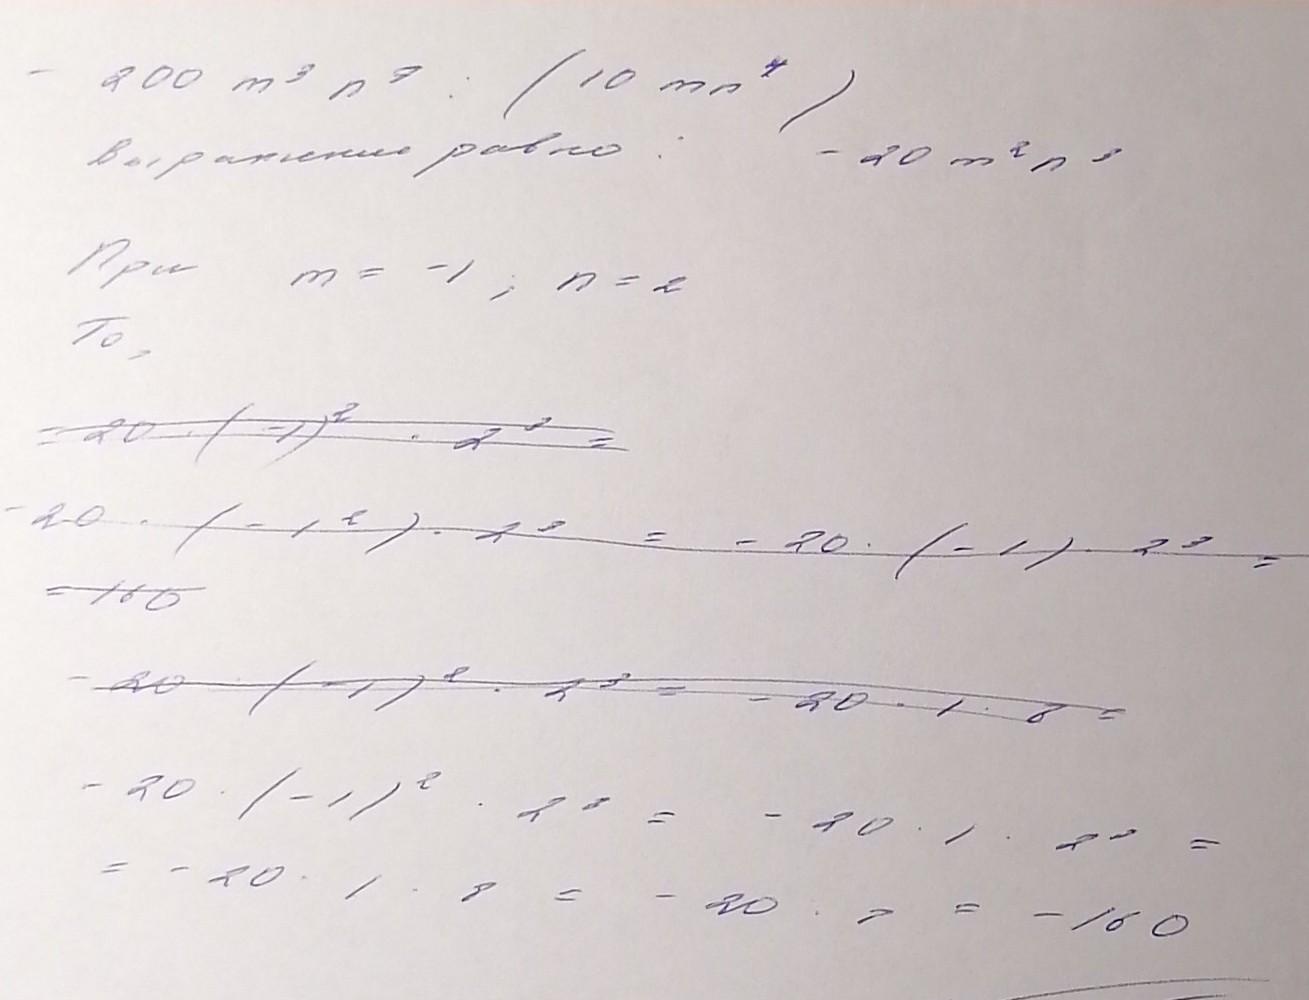 - 200 m³ n⁷ : (10 mn⁴)
Выражение равно : - 20 m² n³
При m = -1 ; n = 2
То,
= 20 · (-1)² · 2³ =
- 20 · (-1²) · 2³ = - 20 · (-1) · 2³ =
= 160
- 20 · (-1)² · 2³ = - 20 · 1 · 8 =
- 20 · (-1)² · 2³ = - 20 · 1 · 2³ =
= - 20 · 1 · 8 = - 20 · 8 = - 160